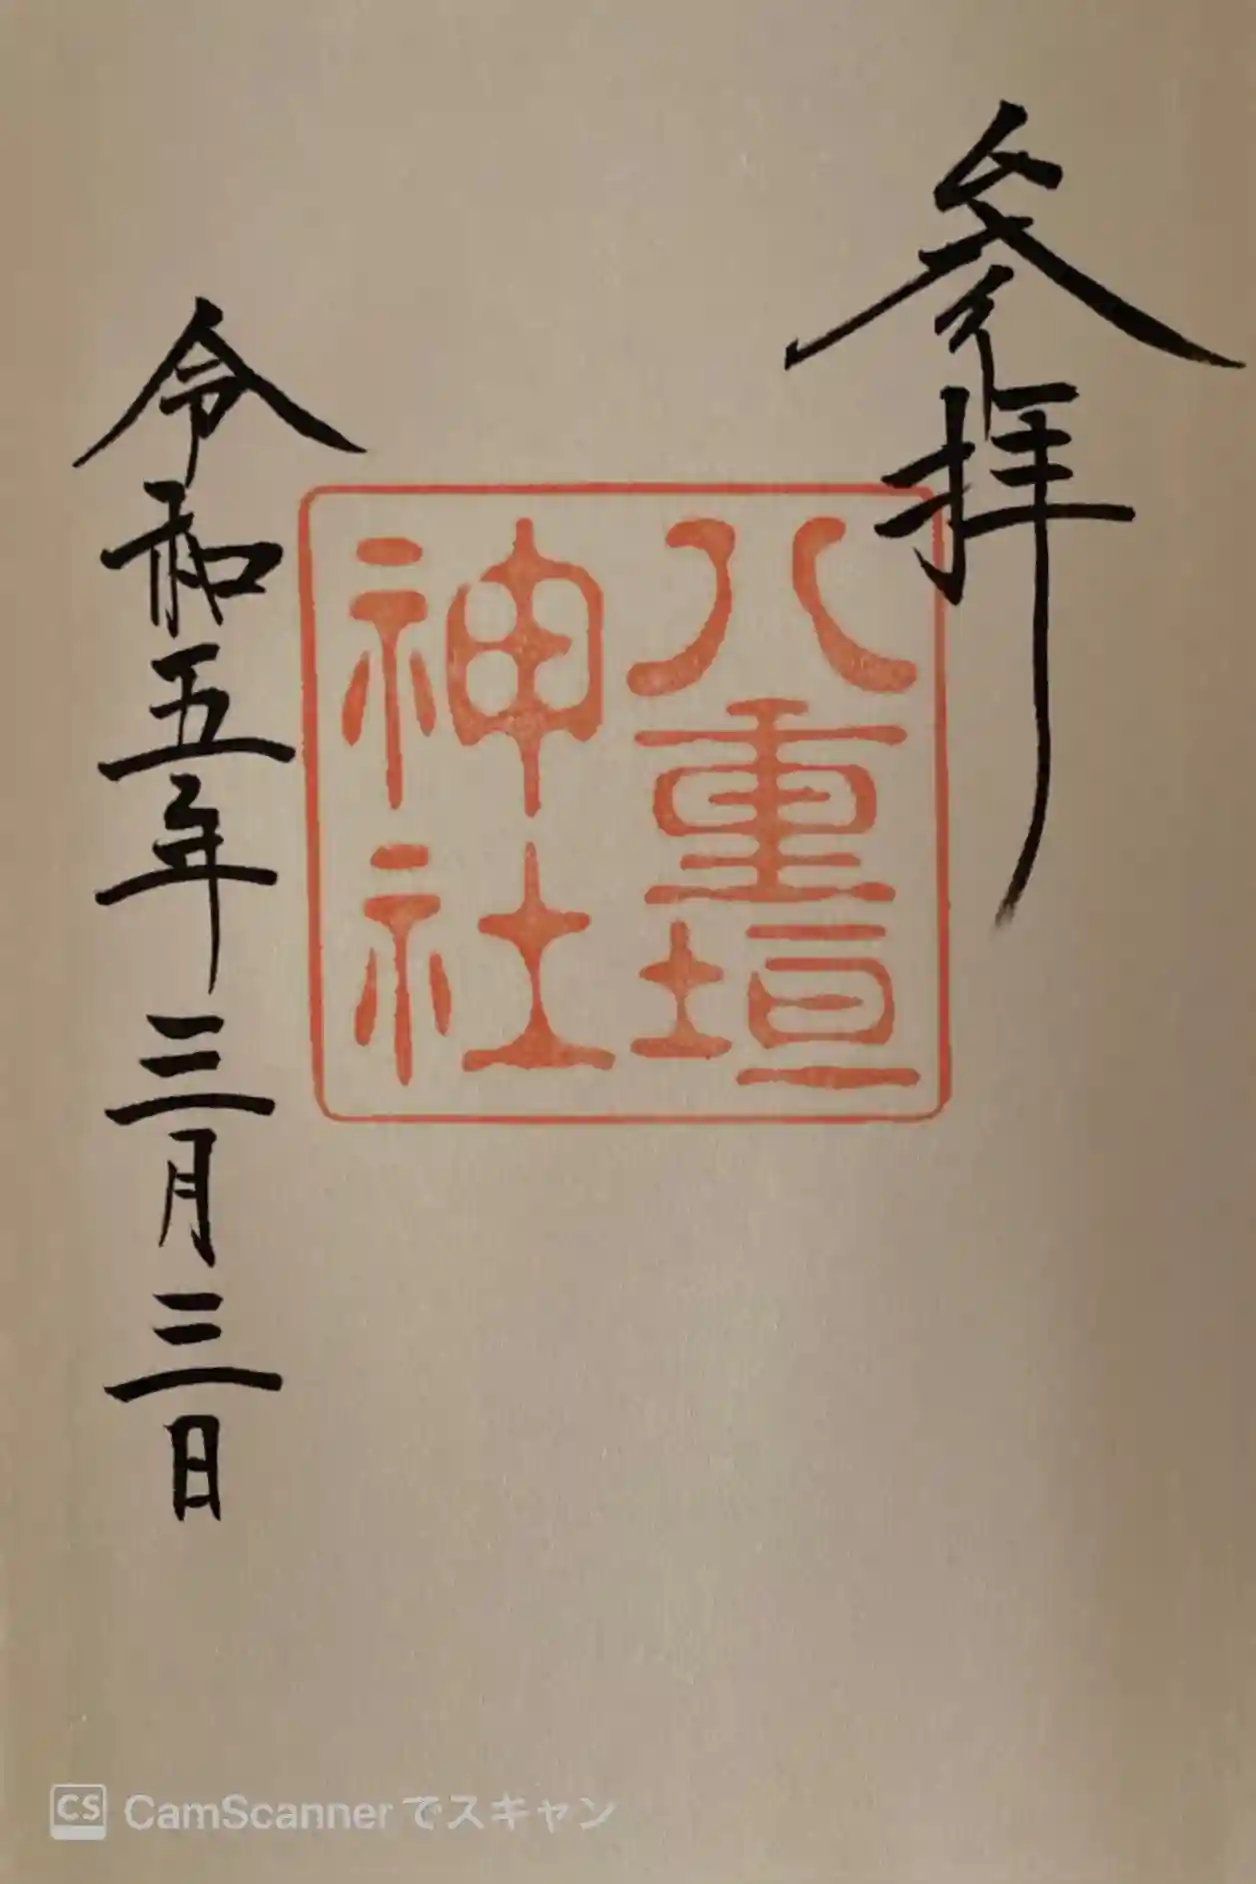 参拝
八重垣
神社
令和五年三月三日
CS CamScannerでスキャン